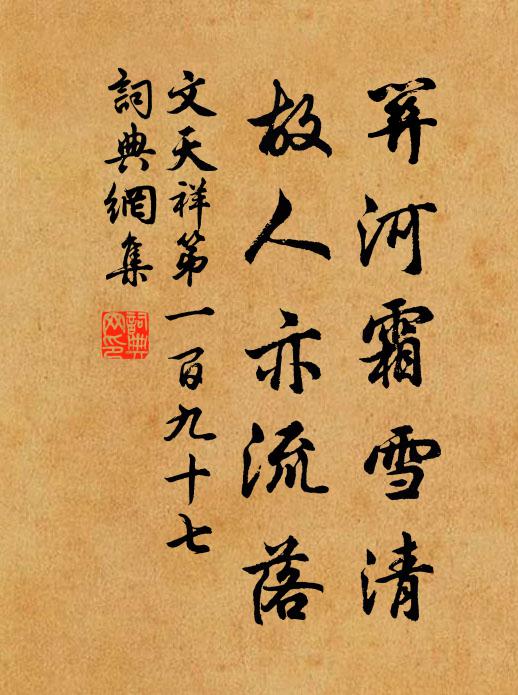 關河霜雪清
故人亦流落
文天祥第一百九十七
詞典網集
詞典
网印